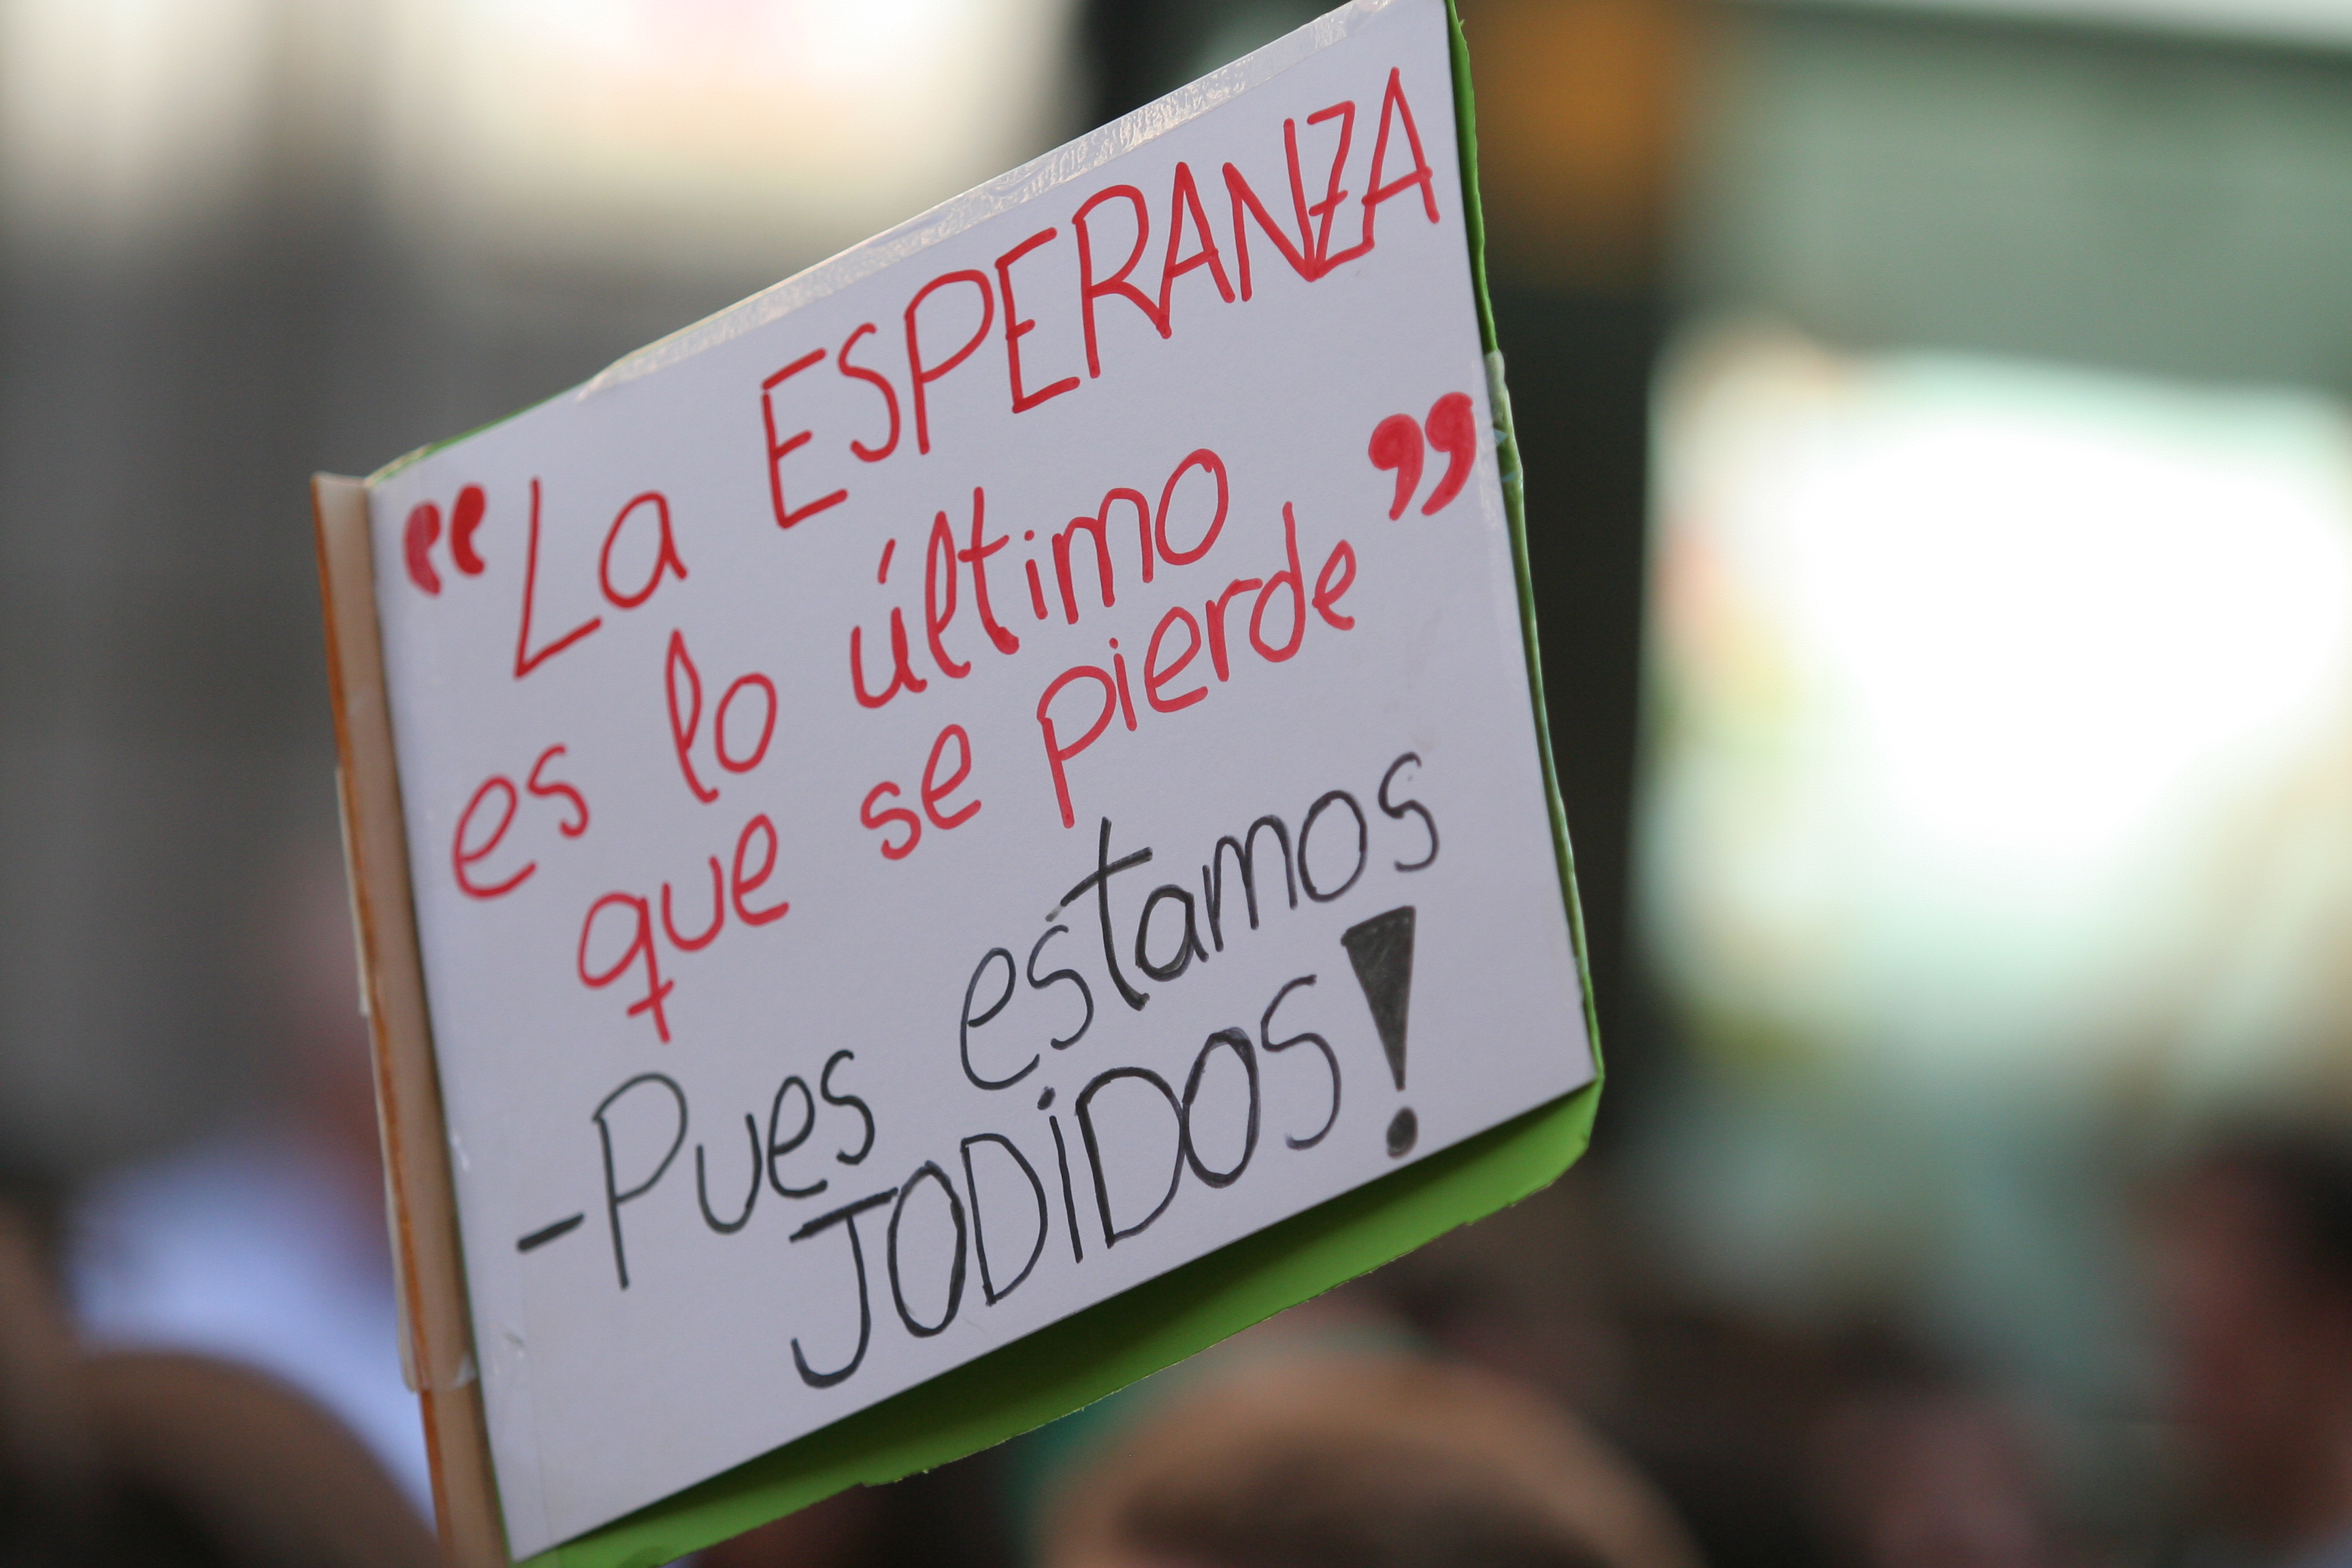 “La ESPERANZA
es lo último
que se pierde”
-Pues estamos
JODiDOS!